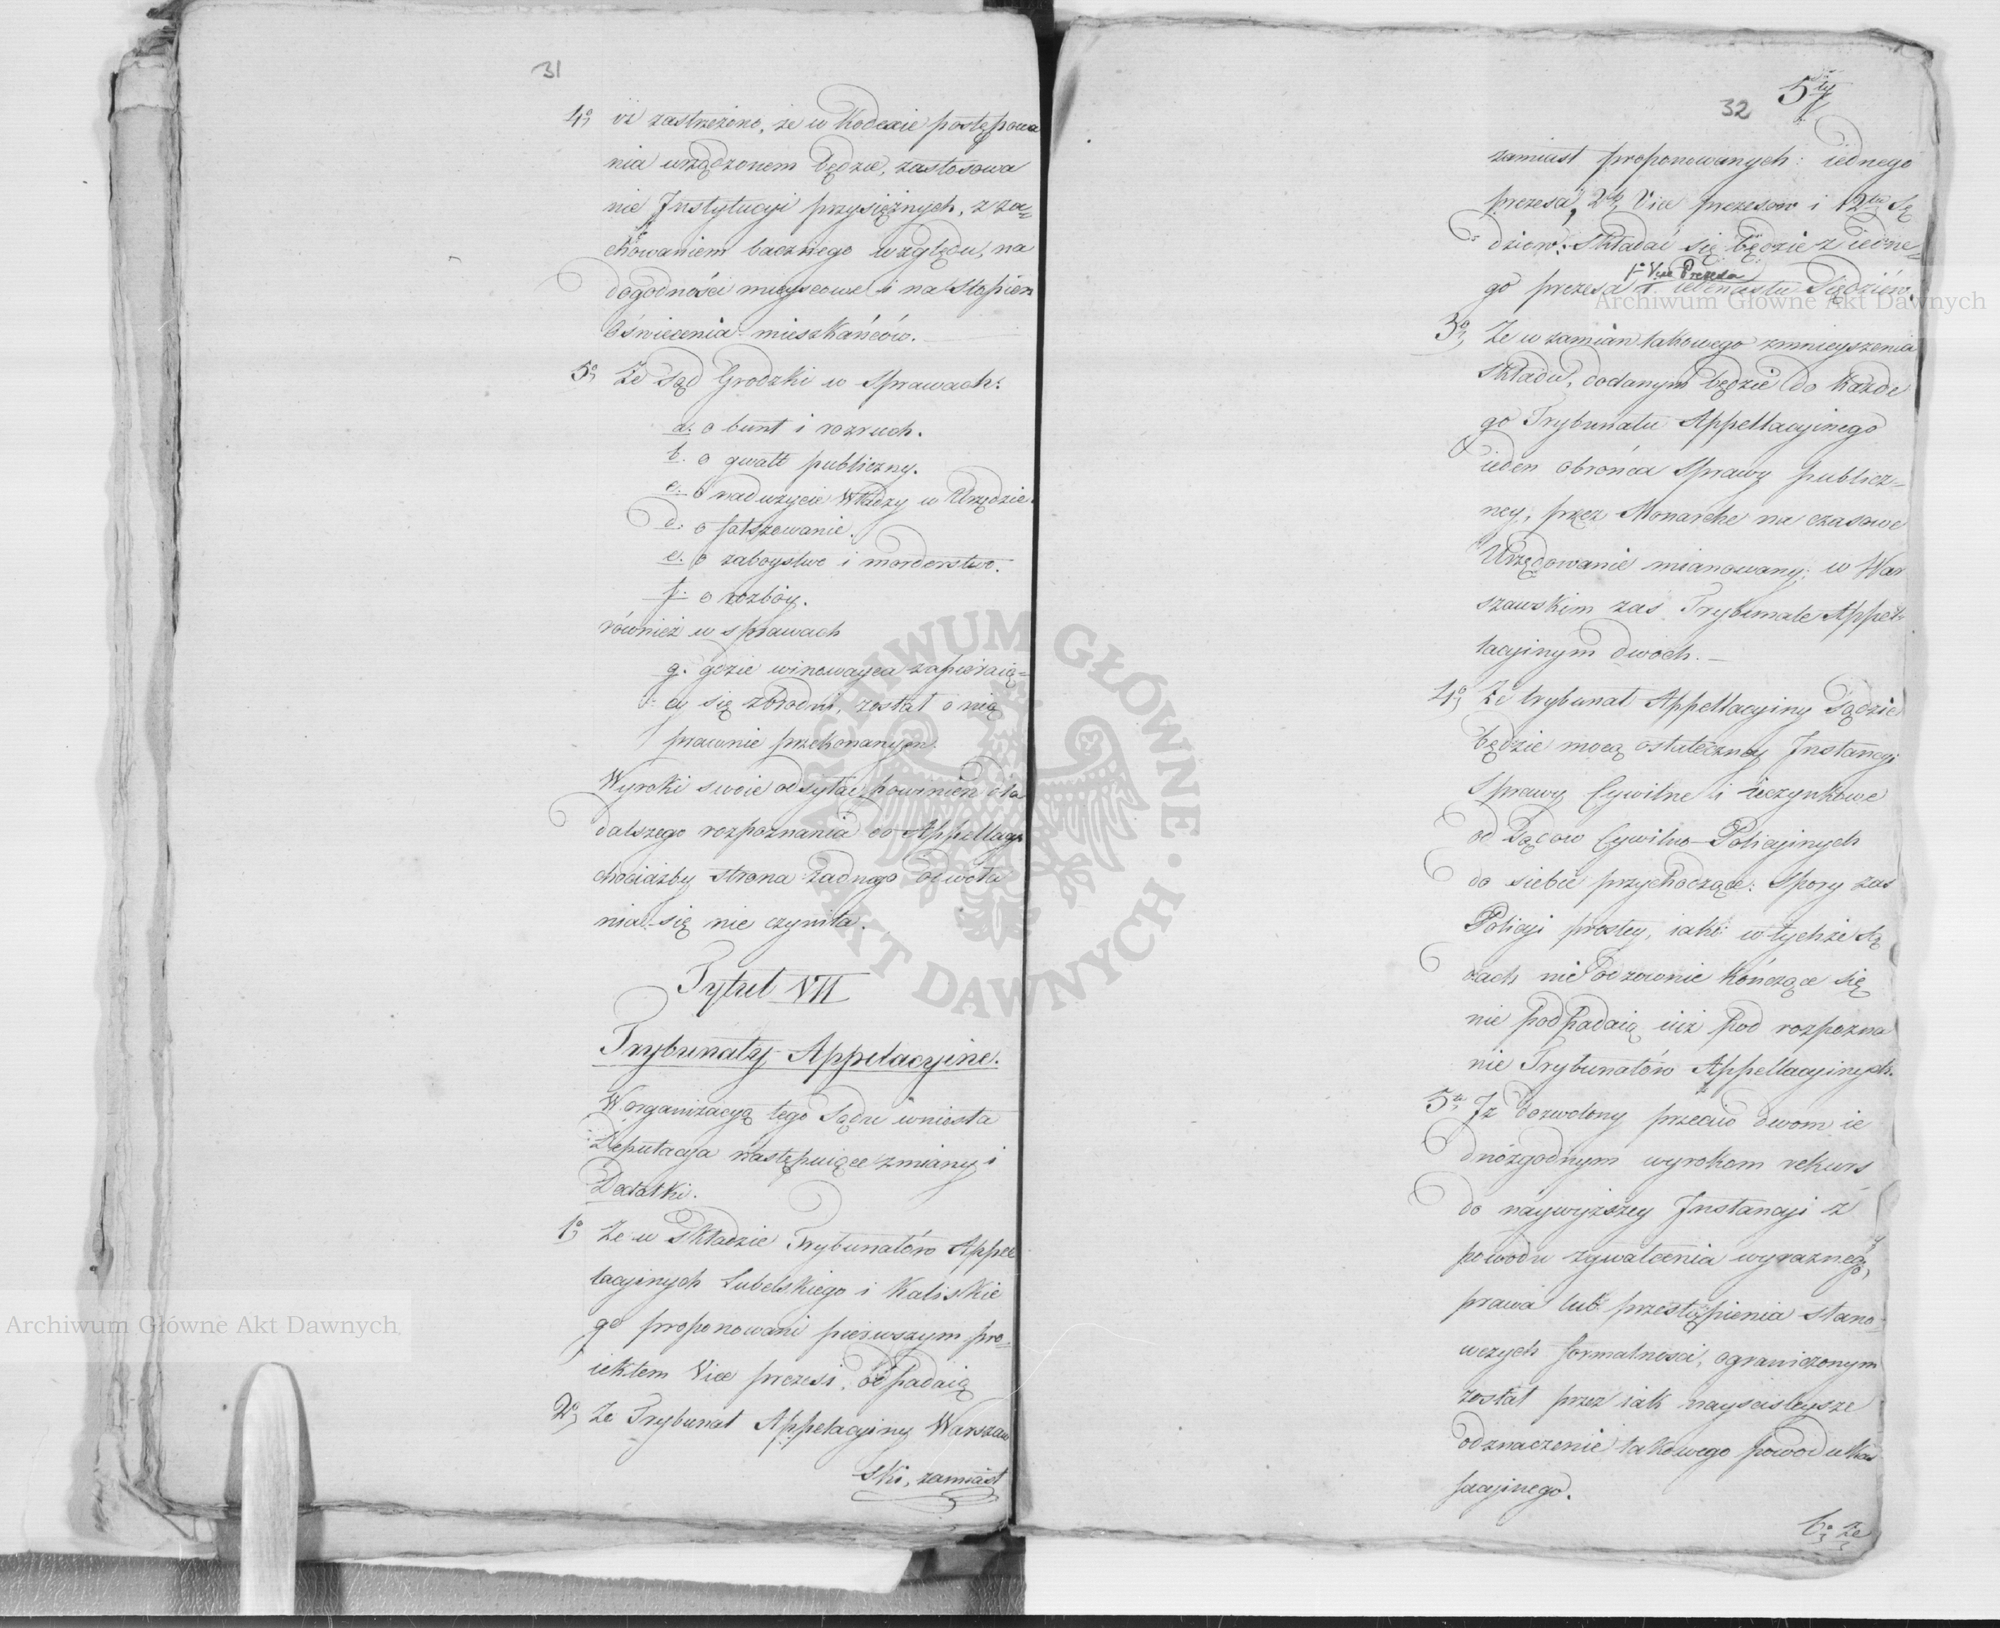 31
4o iż zastrzeżono, że w Kodexie postępowa
nia urządzonem będzie, zastosowa
nie Instytucyi przysięgnych, z za=
chowaniem bacznego względu, na
dogodności mieyscowe i na stopień
Oświecenia mieszkańców.
5o Że Sąd Grodzki w Sprawach:
a. o bunt i rozruch.
b. o gwałt publiczny.
c. o nadużycie Władzy w Urzędzie
d. o fałszowanie.
e. o zaboystwo i morderstwo.
f. o rozbóy.
również w sprawach
g. gdzie winowayca zapieraią=
cy się zbrodni, został o nią
prawnie przekonanym
Wyroki swoie odsyłać powinien dla
dalszego rozpoznania do Appellacyi
chociażby strona żadnego odwoła
nia się nie czyniła.
Tytuł VII
Trybunały Appelacyine.
W organizacyą tego Sądu wniosła
Deputacya następuiące zmiany i
Dodatki.
1o Że w Składzie Trybunałów Appel
lacyinych Lubelskiego i Kaliskie
go proponowani pierwszym pro=
iektem Vice prezesi, odpadaią
2o Że Trybunał Appelacyiny Warszaw
ski, zamiast
32 5ty
zamiast proponowanych: iednego
prezesa, 2ch Vice prezesów i 12tu Sę
dziów: Składać się będzie z iedne=
go prezesa 1o Vice Prezesa i iedenastu Sędziów.
3o Że w zamian takowego zmnieyszenia
Składu, dodanym będzie do każde
go Trybunału Appellacyinego
ieden obrońca Sprawy publicz=
ney, przez Monarchę na czasowe
Urzędowanie mianowany; w War
szawskim zaś Trybunale Appel=
lacyinym dwoch.
4o Że trybunał Appellacyiny Sądzić
będzie mocą ostateczney Instancyi
Sprawy Cywilne i uczynkowe
od Sądow Cywilno-Policyinych
do siebie przychodzące: Spory zaś
Policyi prostey, iako w tychże Są
dach nieodzownie kończące się
nie podpadaią iuż pod rozpozna
nie Trybunałów Appellacyinych.
5o Iż dozwolony przeciw dwom ie
dnozgodnym wyrokom rekurs
do naywyższey Instancyi z
powodu zgwałcenia wyraznego,
prawa lub przestąpienia stano=
wczych formalności, ograniczonym
został przez iak nayściśleysze
odznaczenie takowego powodu kas
sacyinego.
6o Że
Archiwum Główne Akt Dawnych
Archiwum Główne Akt Dawnych
ARCHIWUM GŁÓWNE AKT DAWNYCH